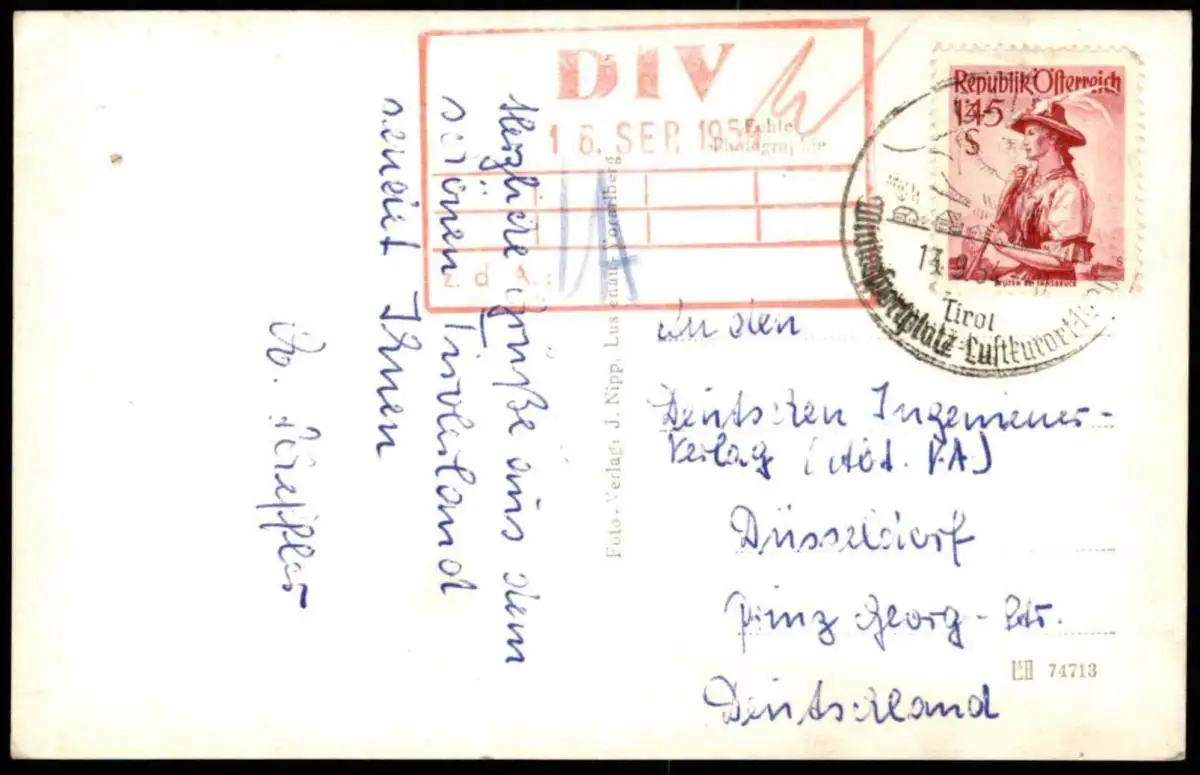 DIV
16. SEP. 1954
z. d. A.:
Echte
Photographie
Republik Österreich
1.45
S
13.9.54
Tirol
Wintersportplatz-Luftkurort
Herzliche Grüße aus dem
schönen Tirolerland
sendet Ihnen
Foto-Verlag: J. Nipp, Lustenau-Vorarlberg
An den
Deutschen Ingenieur-
Verlag (Abt. V.A.)
Düsseldorf
Prinz Georg-Str.
Deutschland
74713